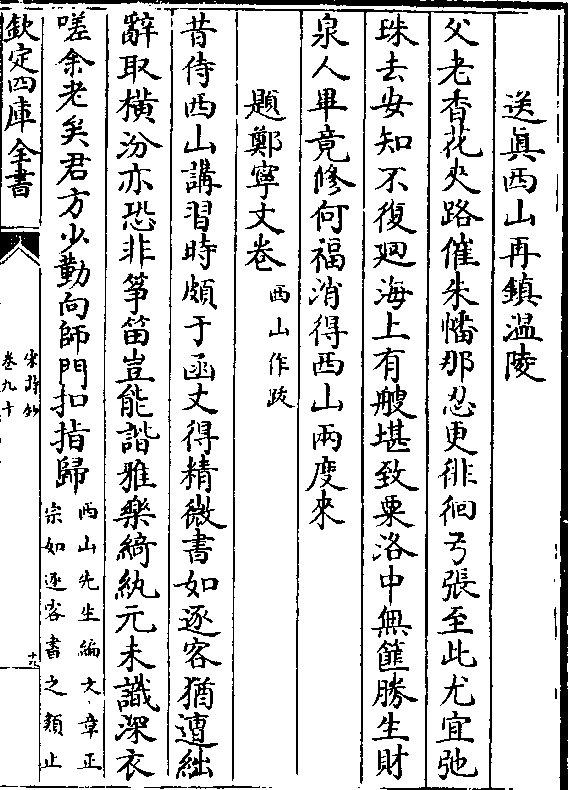 送真西山再鎮溫陵
父老香花夾路催朱幡那忍更徘徊弓張至此尤宜弛
珠去安知不復廻海上有艘堪致粟洛中無篚勝生財
泉人畢竟修何福消得西山兩度來
題鄭寧文卷西山作跋
昔侍西山講習時頗于函丈得精微書如逐客猶遭絀
辭取橫汾亦恐非筝笛豈能諧雅樂綺紈元未識深衣
嗟余老矣君方少勤向師門扣指歸西山先生編文章正
宗如逐客書之類止
欽定四庫全書
宋詩鈔
卷九十
十九